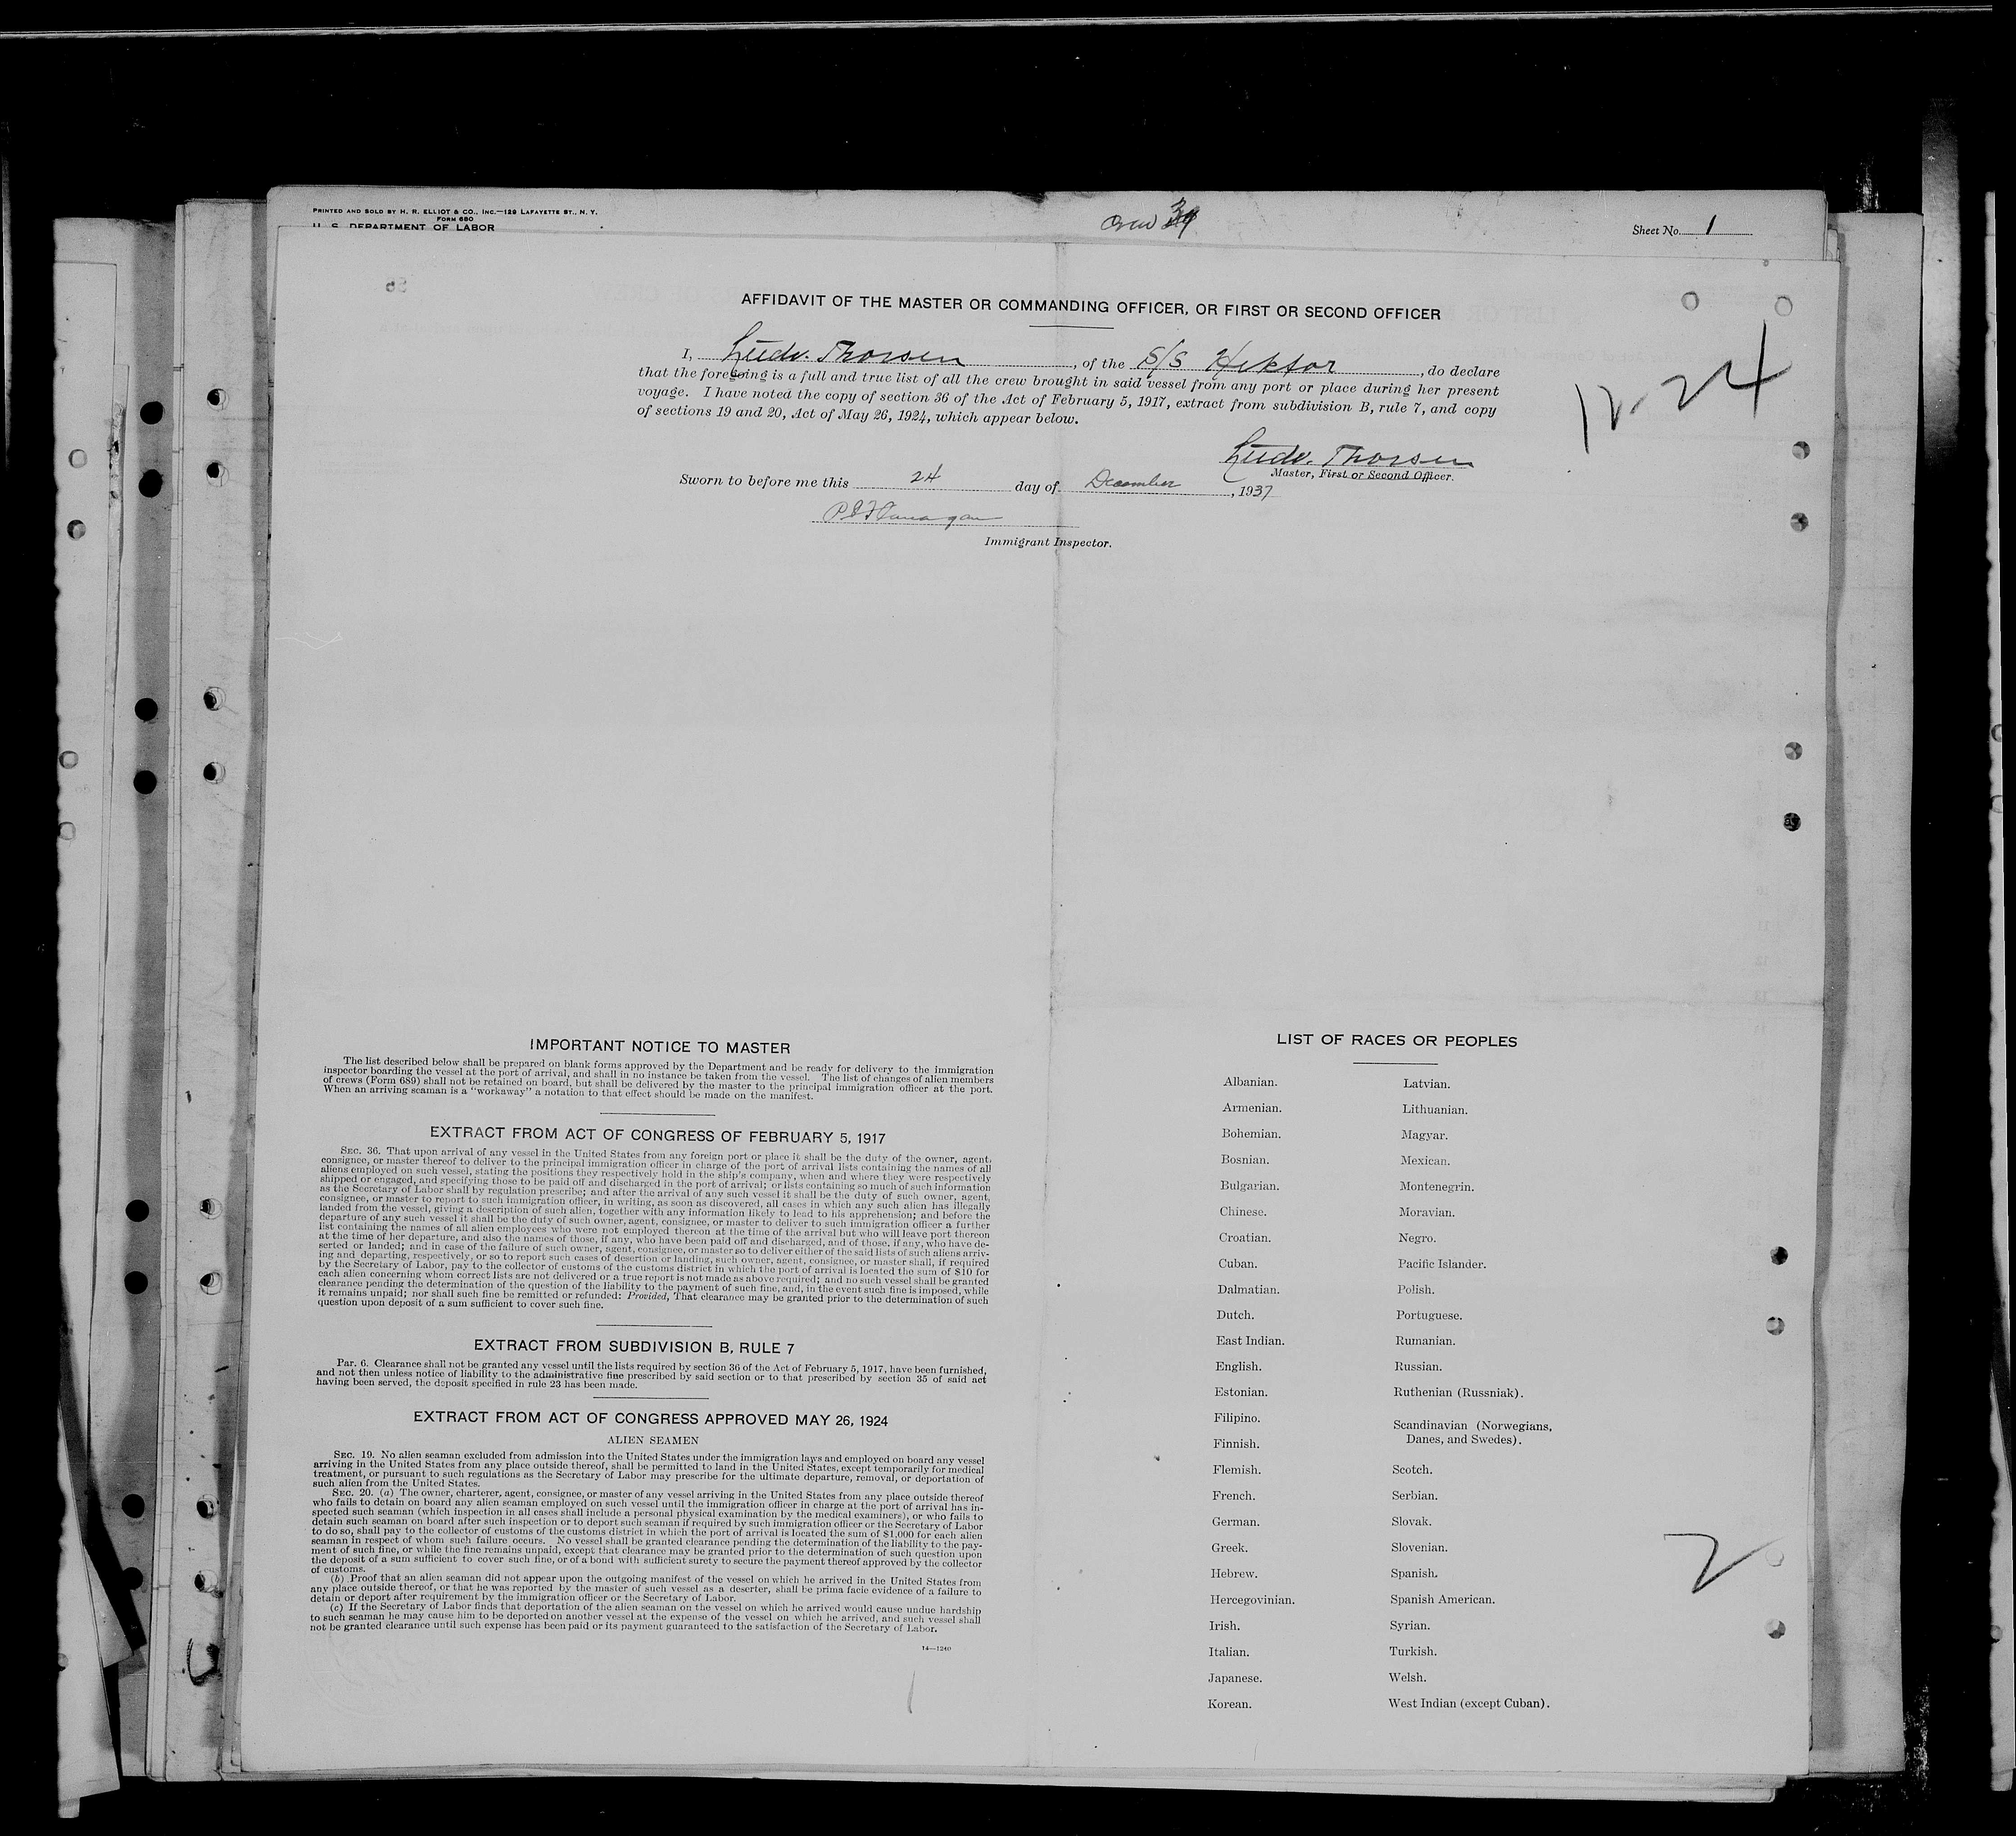 PRINTED AND SOLD BY H. R. ELLIOT & CO., INC.—129 LAFAYETTE ST., N. Y.
FORM 680
U. S. DEPARTMENT OF LABOR
Crew
Sheet No. 1
AFFIDAVIT OF THE MASTER OR COMMANDING OFFICER, OR FIRST OR SECOND OFFICER
12-24
I, Ludv. Thorsen, of the S/S Hektor, do declare
that the foregoing is a full and true list of all the crew brought in said vessel from any port or place during her present
voyage. I have noted the copy of section 36 of the Act of February 5, 1917, extract from subdivision B, rule 7, and copy
of sections 19 and 20, Act of May 26, 1924, which appear below.
Ludv. Thorsen
Master, First or Second Officer.
Sworn to before me this 24 day of December, 1937
Flanagan
Immigrant Inspector.
IMPORTANT NOTICE TO MASTER
The list described below shall be prepared on blank forms approved by the Department and be ready for delivery to the immigration
inspector boarding the vessel at the port of arrival, and shall in no instance be taken from the vessel. The list of changes of alien members
of crews (Form 689) shall not be retained on board, but shall be delivered by the master to the principal immigration officer at the port.
When an arriving seaman is a "workaway" a notation to that effect should be made on the manifest.
EXTRACT FROM ACT OF CONGRESS OF FEBRUARY 5, 1917
SEC. 36. That upon arrival of any vessel in the United States from any foreign port or place it shall be the duty of the owner, agent,
consignee, or master thereof to deliver to the principal immigration officer in charge of the port of arrival lists containing the names of all
aliens employed on such vessel, stating the positions they respectively hold in the ship's company, when and where they were respectively
shipped or engaged, and specifying those to be paid off and discharged in the port of arrival; or lists containing so much of such information
as the Secretary of Labor shall by regulation prescribe; and after the arrival of any such vessel it shall be the duty of such owner, agent,
consignee, or master to report to such immigration officer, in writing, as soon as discovered, all cases in which any such alien has illegally
landed from the vessel, giving a description of such alien, together with any information likely to lead to his apprehension; and before the
departure of any such vessel it shall be the duty of such owner, agent, consignee, or master to deliver to such immigration officer a further
list containing the names of all alien employees who were not employed thereon at the time of the arrival but who will leave port thereon
at the time of her departure, and also the names of those, if any, who have been paid off and discharged, and of those, if any, who have de-
serted or landed; and in case of the failure of such owner, agent, consignee, or master so to deliver either of the said lists of such aliens arriv-
ing and departing, respectively, or so to report such cases of desertion or landing, such owner, agent, consignee, or master shall, if required
by the Secretary of Labor, pay to the collector of customs of the customs district in which the port of arrival is located the sum of $10 for
each alien concerning whom correct lists are not delivered or a true report is not made as above required; and no such vessel shall be granted
clearance pending the determination of the question of the liability to the payment of such fine, and, in the event such fine is imposed, while
it remains unpaid; nor shall such fine be remitted or refunded: Provided, That clearance may be granted prior to the determination of such
question upon deposit of a sum sufficient to cover such fine.
EXTRACT FROM SUBDIVISION B, RULE 7
Par. 6. Clearance shall not be granted any vessel until the lists required by section 36 of the Act of February 5, 1917, have been furnished,
and not then unless notice of liability to the administrative fine prescribed by said section or to that prescribed by section 35 of said act
having been served, the deposit specified in rule 23 has been made.
EXTRACT FROM ACT OF CONGRESS APPROVED MAY 26, 1924
ALIEN SEAMEN
SEC. 19. No alien seaman excluded from admission into the United States under the immigration lays and employed on board any vessel
arriving in the United States from any place outside thereof, shall be permitted to land in the United States, except temporarily for medical
treatment, or pursuant to such regulations as the Secretary of Labor may prescribe for the ultimate departure, removal, or deportation of
such alien from the United States.
SEC. 20. (a) The owner, charterer, agent, consignee, or master of any vessel arriving in the United States from any place outside thereof
who fails to detain on board any alien seaman employed on such vessel until the immigration officer in charge at the port of arrival has in-
spected such seaman (which inspection in all cases shall include a personal physical examination by the medical examiners), or who fails to
detain such seaman on board after such inspection or to deport such seaman if required by such immigration officer or the Secretary of Labor
to do so, shall pay to the collector of customs of the customs district in which the port of arrival is located the sum of $1,000 for each alien
seaman in respect of whom such failure occurs. No vessel shall be granted clearance pending the determination of the liability to the pay-
ment of such fine, or while the fine remains unpaid, except that clearance may be granted prior to the determination of such question upon
the deposit of a sum sufficient to cover such fine, or of a bond with sufficient surety to secure the payment thereof approved by the collector
of customs.
(b) Proof that an alien seaman did not appear upon the outgoing manifest of the vessel on which he arrived in the United States from
any place outside thereof, or that he was reported by the master of such vessel as a deserter, shall be prima facie evidence of a failure to
detain or deport after requirement by the immigration officer or the Secretary of Labor.
(c) If the Secretary of Labor finds that deportation of the alien seaman on the vessel on which he arrived would cause undue hardship
to such seaman he may cause him to be deported on another vessel at the expense of the vessel on which he arrived, and such vessel shall
not be granted clearance until such expense has been paid or its payment guaranteed to the satisfaction of the Secretary of Labor.
14—1240
LIST OF RACES OR PEOPLES
Albanian.
Armenian.
Bohemian.
Bosnian.
Bulgarian.
Chinese.
Croatian.
Cuban.
Dalmatian.
Dutch.
East Indian.
English.
Estonian.
Filipino.
Finnish.
Flemish.
French.
German.
Greek.
Hebrew.
Hercegovinian.
Irish.
Italian.
Japanese.
Korean.
Latvian.
Lithuanian.
Magyar.
Mexican.
Montenegrin.
Moravian.
Negro.
Pacific Islander.
Polish.
Portuguese.
Rumanian.
Russian.
Ruthenian (Russniak).
Scandinavian (Norwegians,
Danes, and Swedes).
Scotch.
Serbian.
Slovak.
Slovenian.
Spanish.
Spanish American.
Syrian.
Turkish.
Welsh.
West Indian (except Cuban).
2